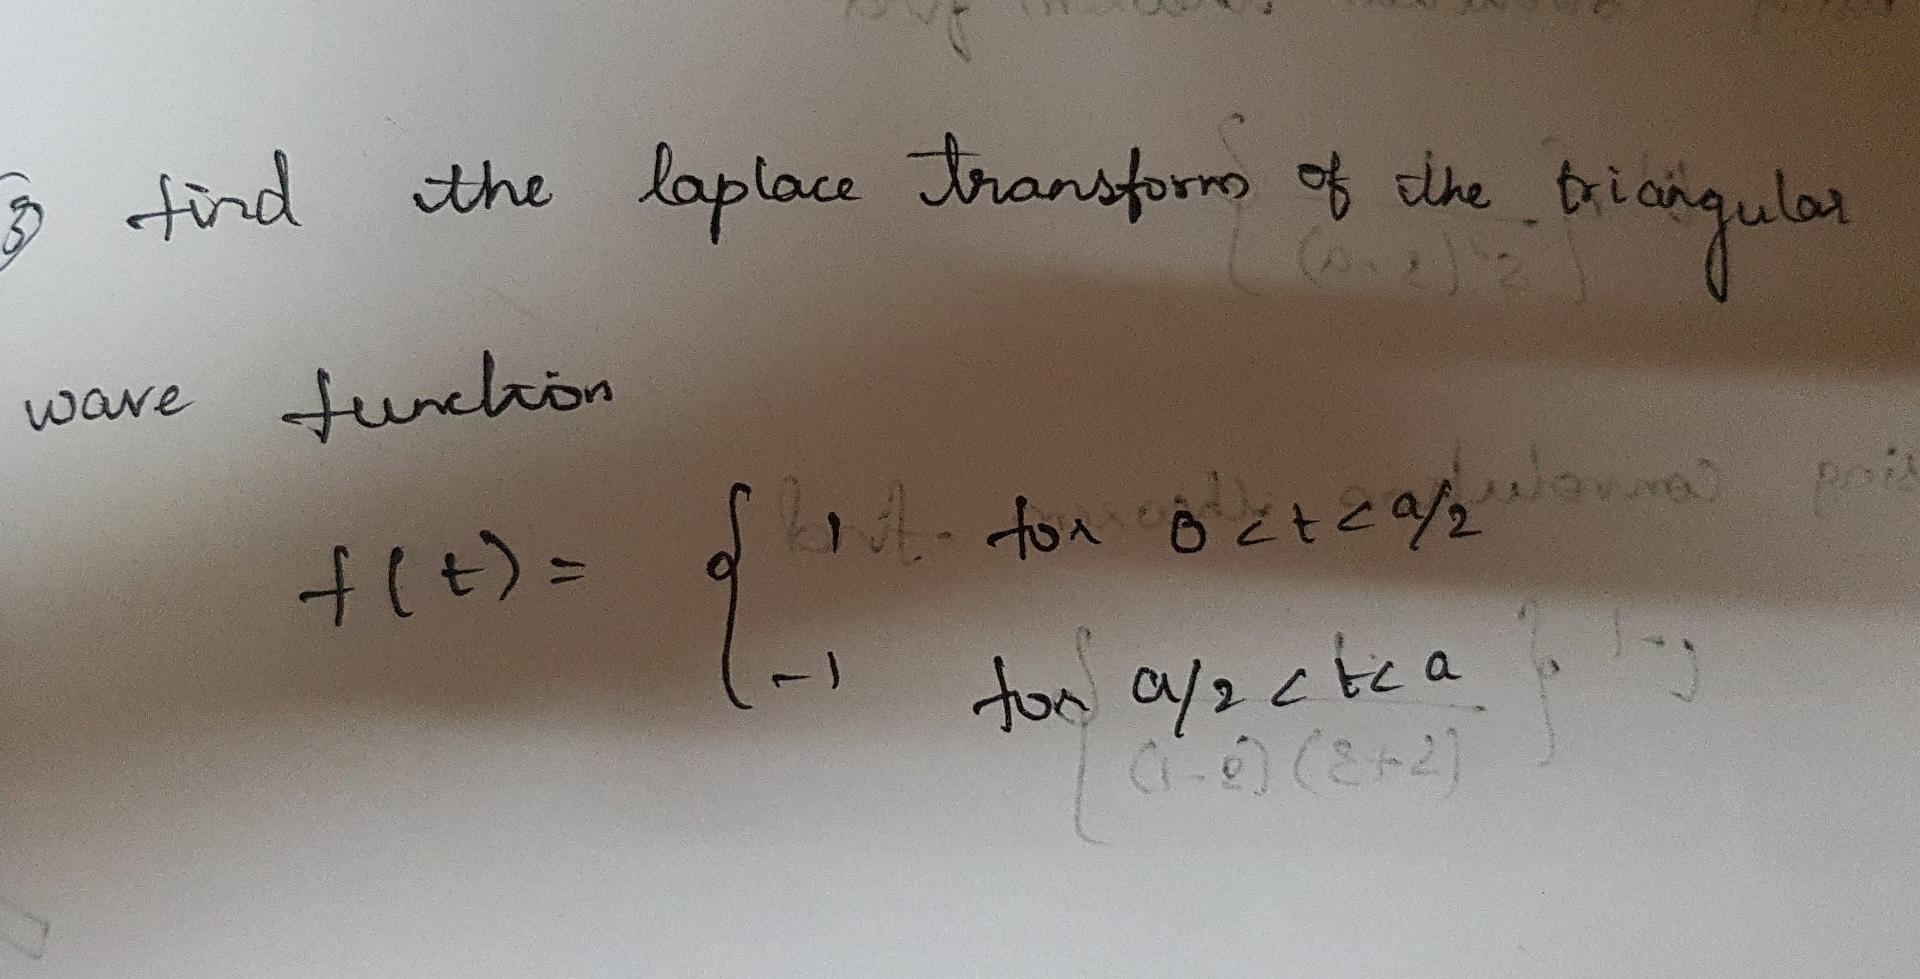 3 find the laplace transform of the triangular
wave function
f(t) = { 1 for 0 < t < a/2
-1 for a/2 < t < a